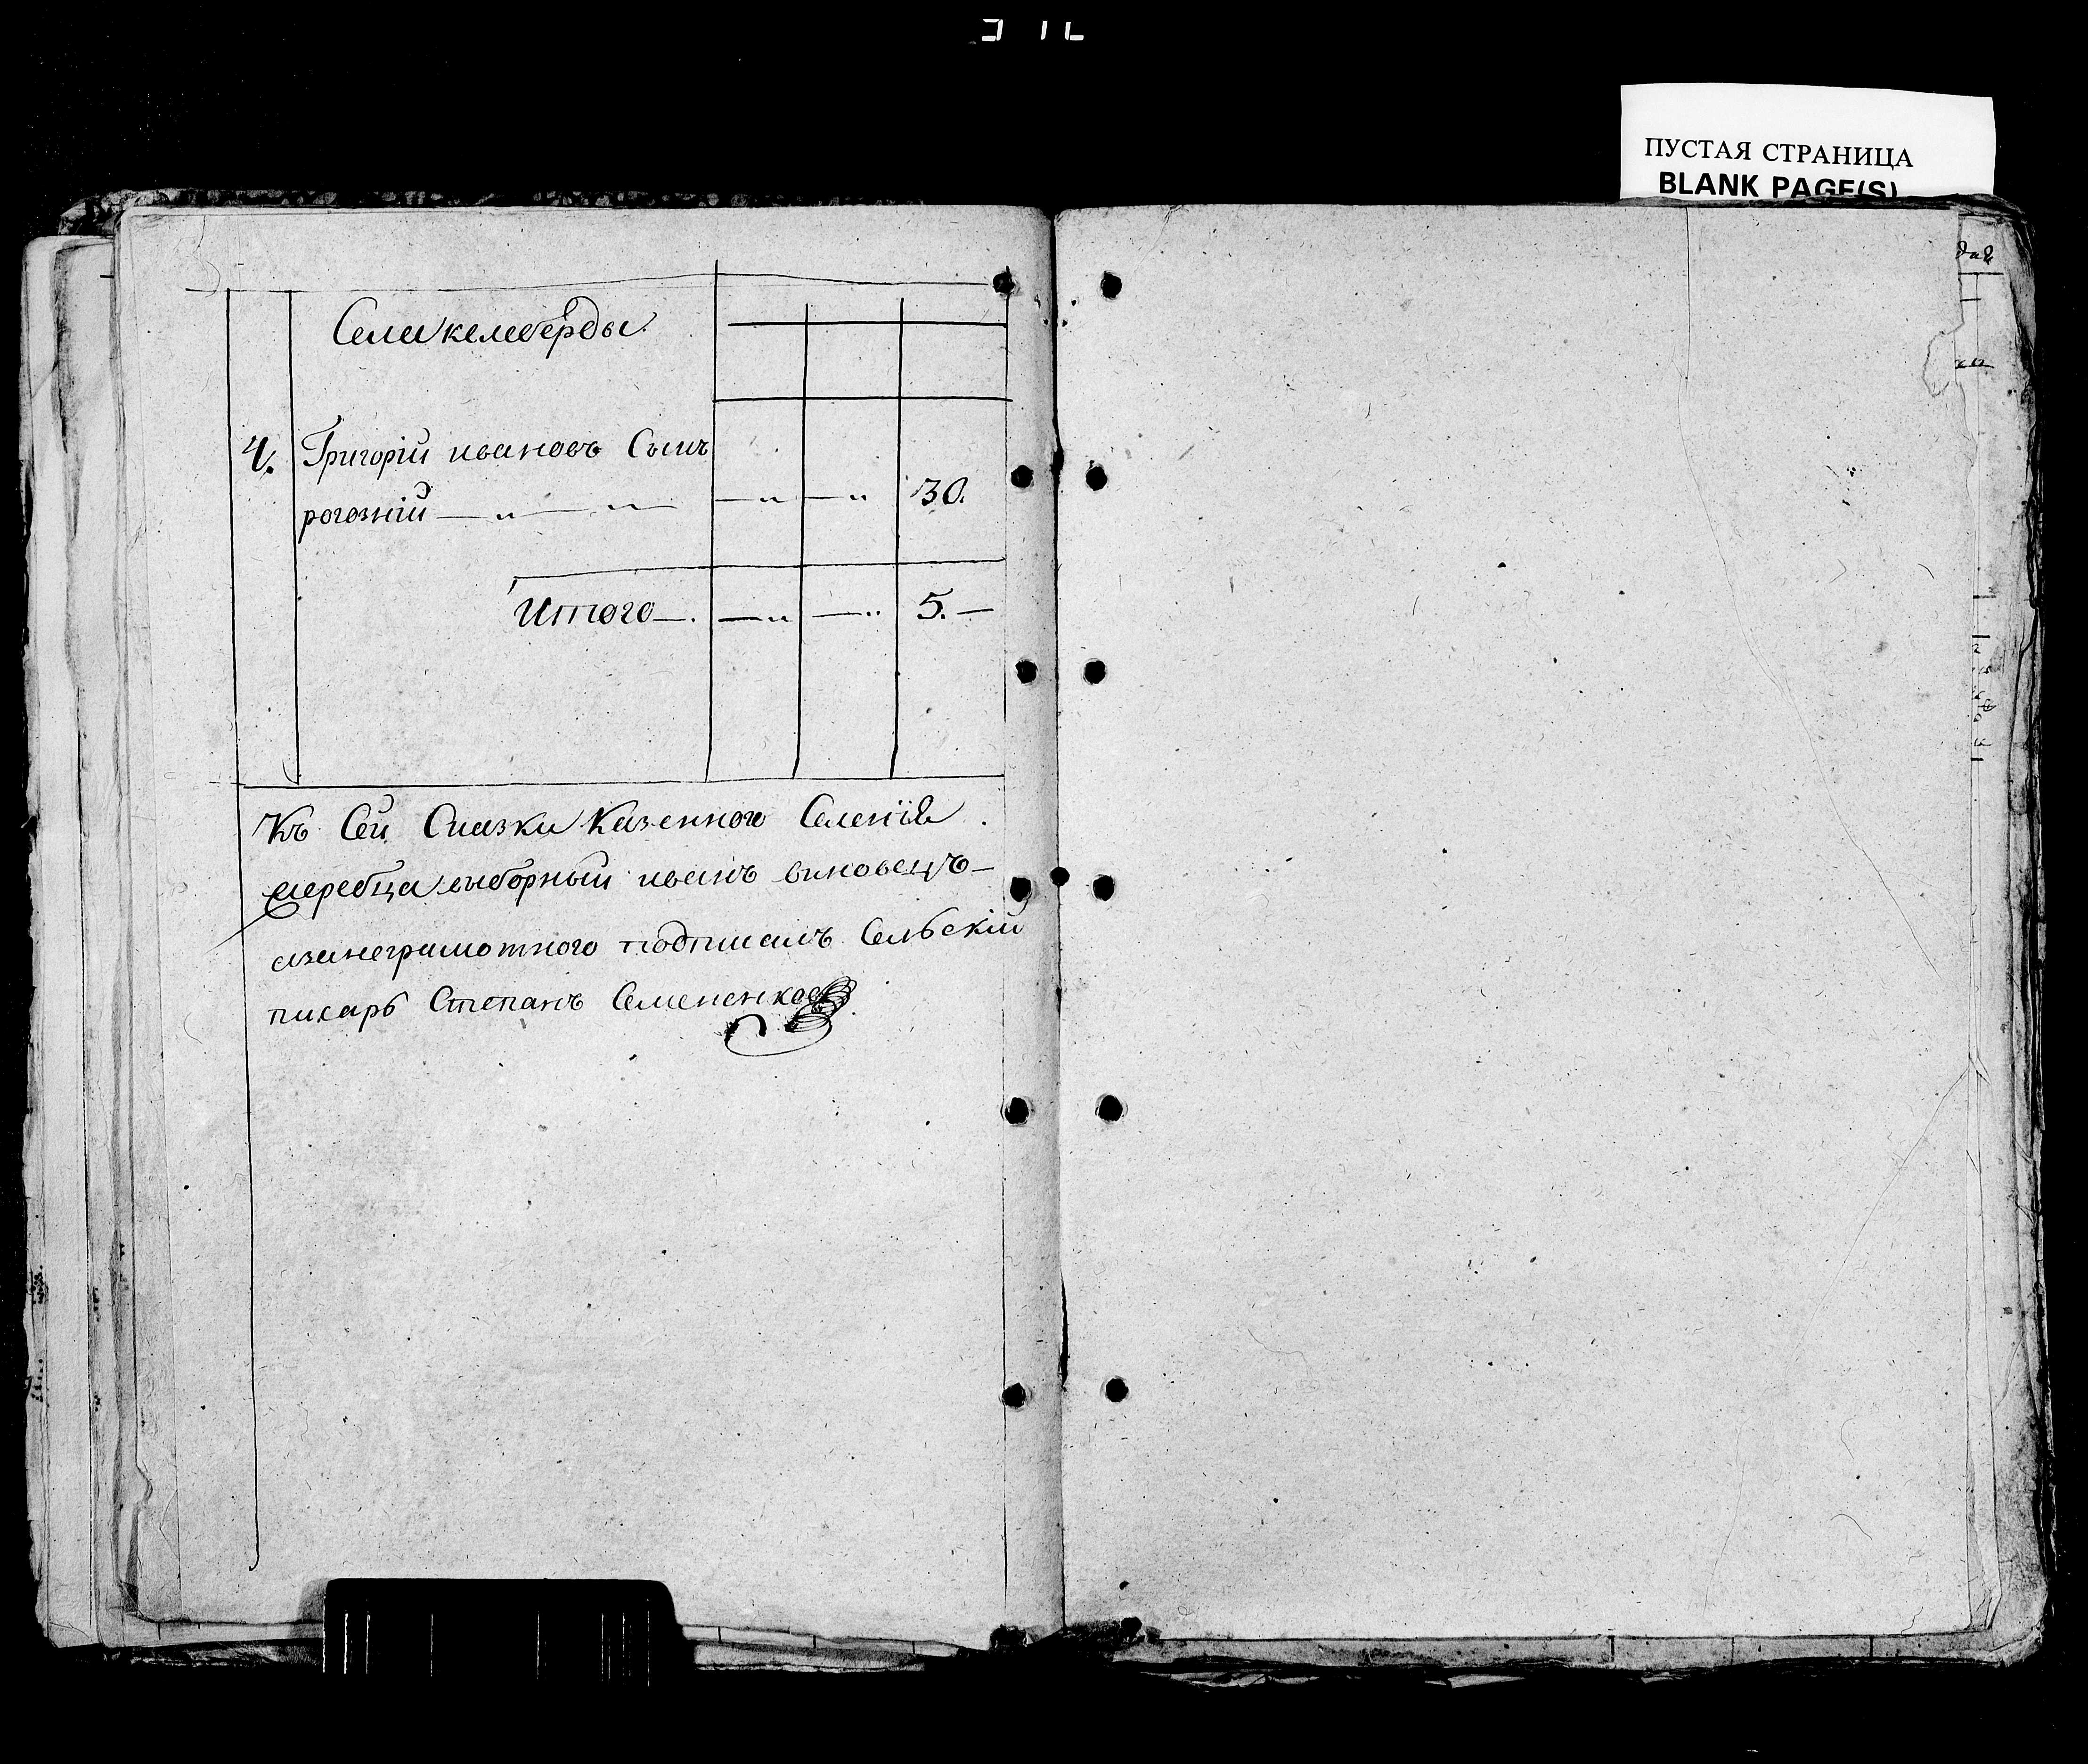 ПУСТАЯ СТРАНИЦА
BLANK PAGE(S)
Села келеберды
4. Григорій ивановъ Сынъ
рогозній — „ — „ — — „ — „ 30.
Итого — . — „ — „ 5. —
Къ Сей Сказки Казенного Селенія
жеребца выборный иванъ виновецъ —
азанеграмотного подписалъ Сельскій
писарь Степанъ Семененко